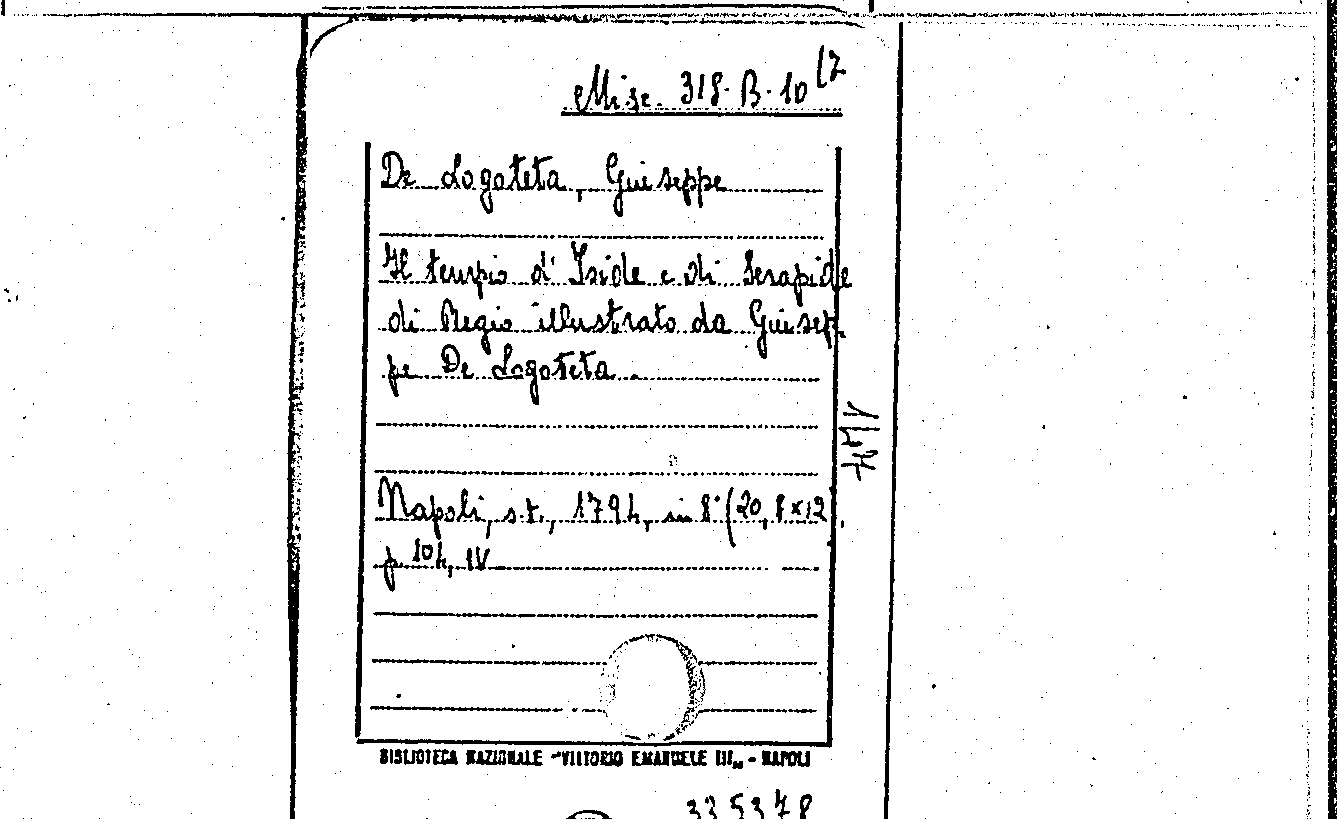 Misc. 318. B. 10 (7
De Logoteta, Giuseppe
Il tempio d' Iside e di Serapide
di Regio illustrato da Giusep-
pe De Logoteta.
Napoli, s.t., 1794, in 8° (20,8x12).
p. 104, IV
BIBLIOTECA NAZIONALE "VITTORIO EMANUELE III„ - NAPOLI
335378